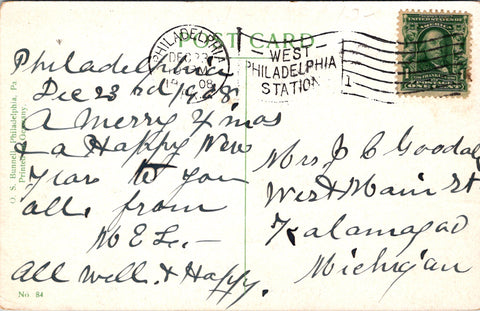 POST CARD
PHILADELPHIA
DEC 23
1908
WEST
PHILADELPHIA
STATION
1
UNITED STATES OF AMERICA
ONE CENT
Philadelphia
Dec 23rd/1908
A Merry Xmas
& a Happy New
Year to you
all. from
M E L. —
All well & Happy.
Mrs J C Goodale
West Main St
Kalamazoo
Michigan
O. S. Bunnell, Philadelphia, Pa.
Printed in Germany.
No. 84